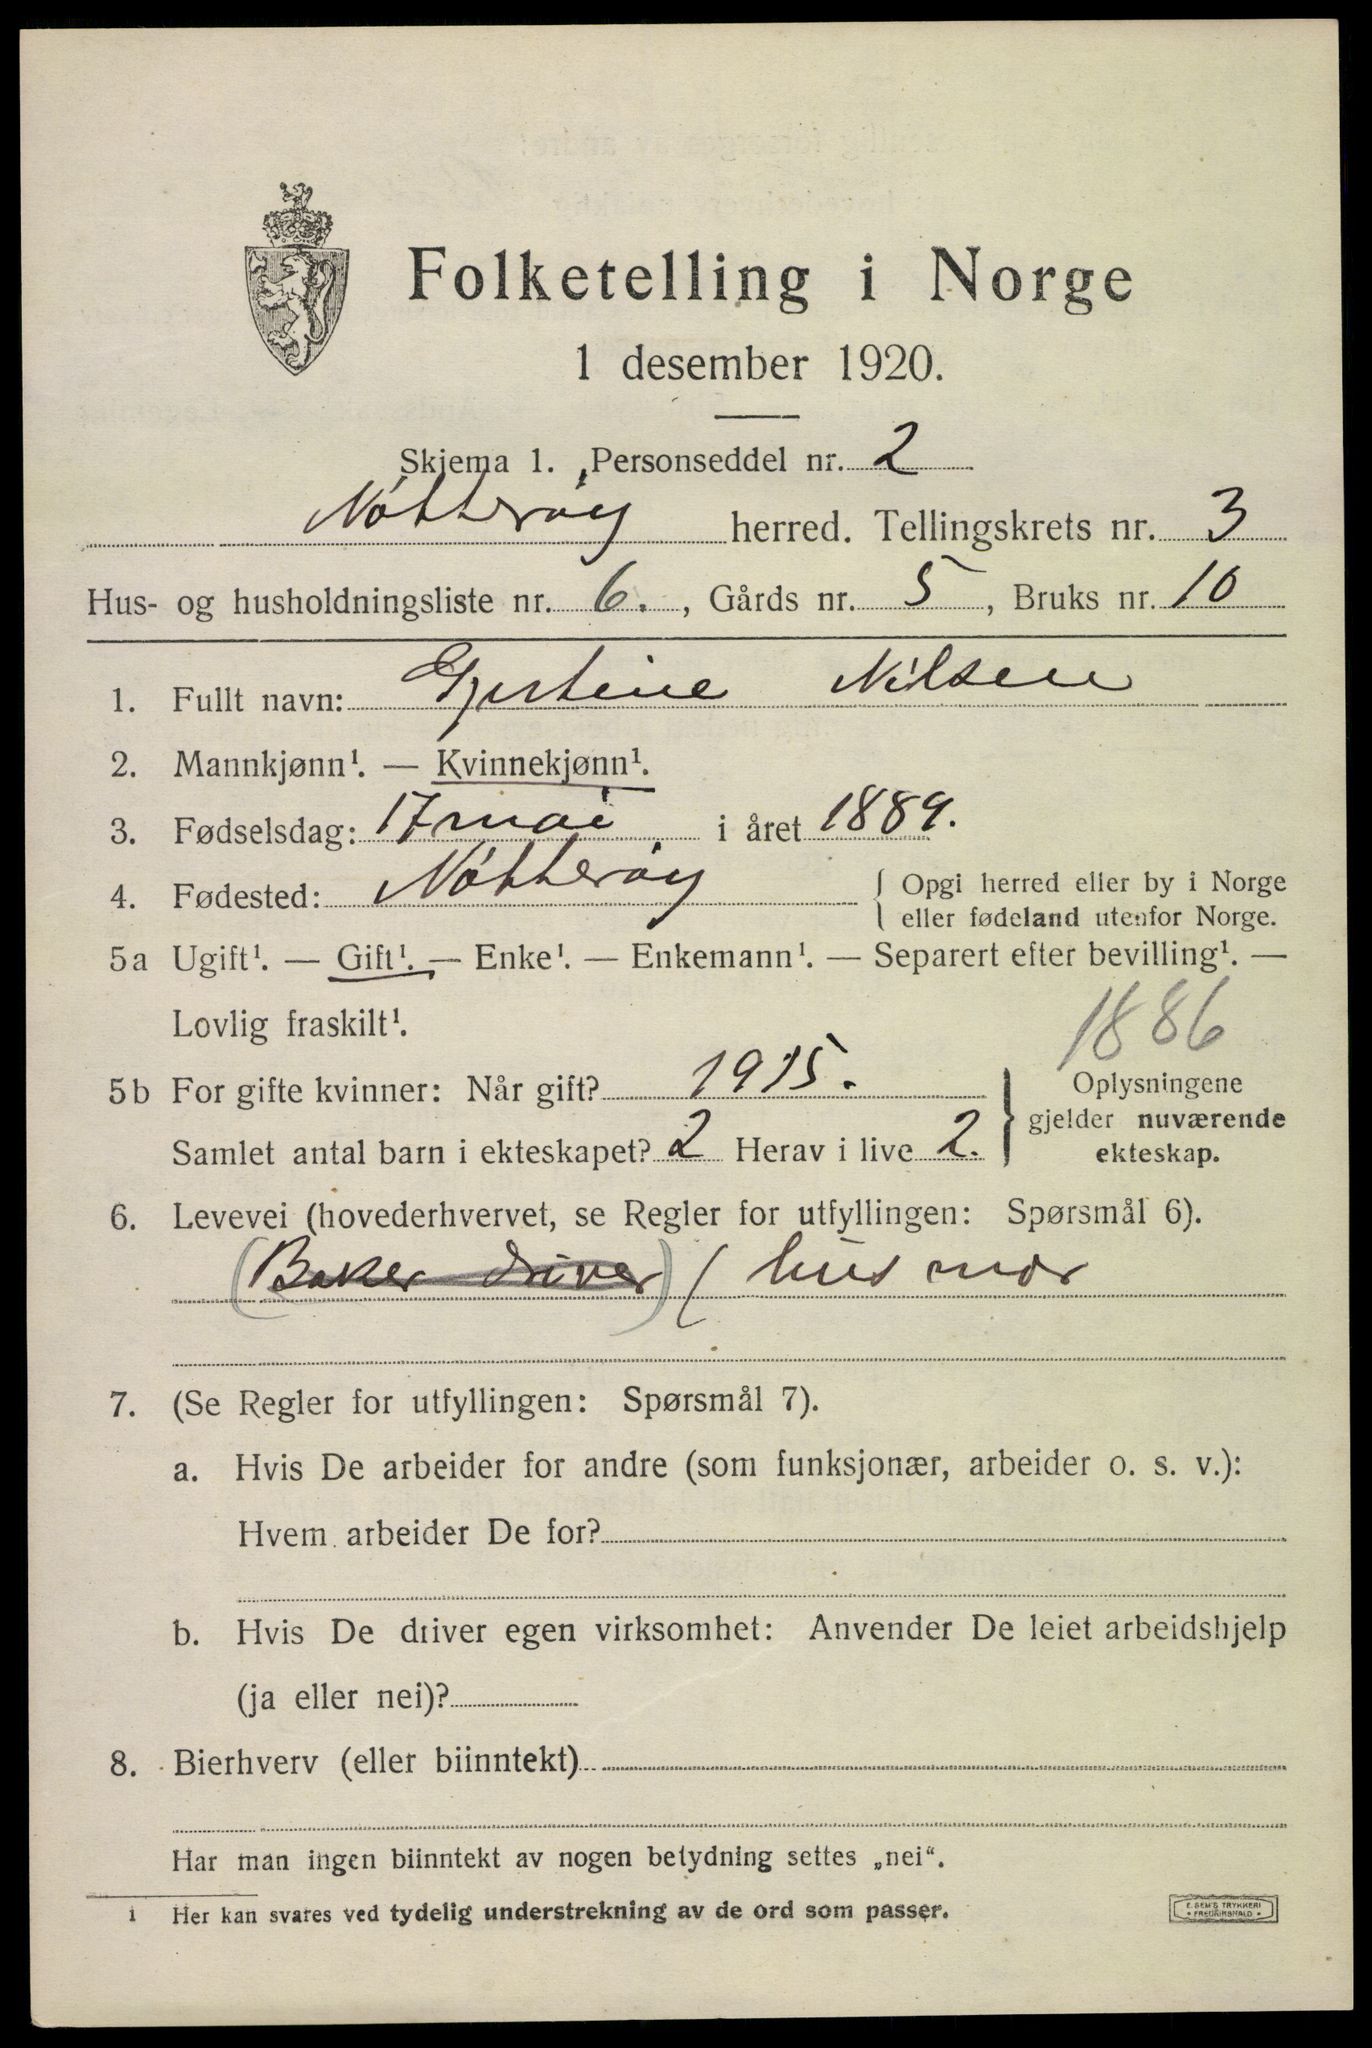 Folketelling i Norge
1 desember 1920.
Skjema 1. Personseddel nr. 2
Nøtterøy herred. Tellingskrets nr. 3
Hus- og husholdningsliste nr. 6. , Gårds nr. 5 , Bruks nr. 10
1. Fullt navn: Gjertine Nilsen
2. Mannkjønn¹. — Kvinnekjønn¹.
3. Fødselsdag: 17 mai i året 1889.
4. Fødested: Nøtterøy { Opgi herred eller by i Norge
eller fødeland utenfor Norge.
5a Ugift¹. — Gift¹. — Enke¹. — Enkemann¹. — Separert efter bevilling¹. —
Lovlig fraskilt¹.
1886
5b For gifte kvinner: Når gift? 1915.
Samlet antal barn i ekteskapet? 2 Herav i live 2.
Oplysningene
gjelder nuværende
ekteskap.
6. Levevei (hovederhvervet, se Regler for utfyllingen: Spørsmål 6).
(Baker driver) / hus mor
7. (Se Regler for utfyllingen: Spørsmål 7).
a. Hvis De arbeider for andre (som funksjonær, arbeider o. s. v.):
Hvem arbeider De for?
b. Hvis De driver egen virksomhet: Anvender De leiet arbeidshjelp
(ja eller nei)?
8. Bierhverv (eller biinntekt)
Har man ingen biinntekt av nogen betydning settes „nei“.
1 Her kan svares ved tydelig understrekning av de ord som passer.
E. SEM'S TRYKKERI
FREDRIKSHALD